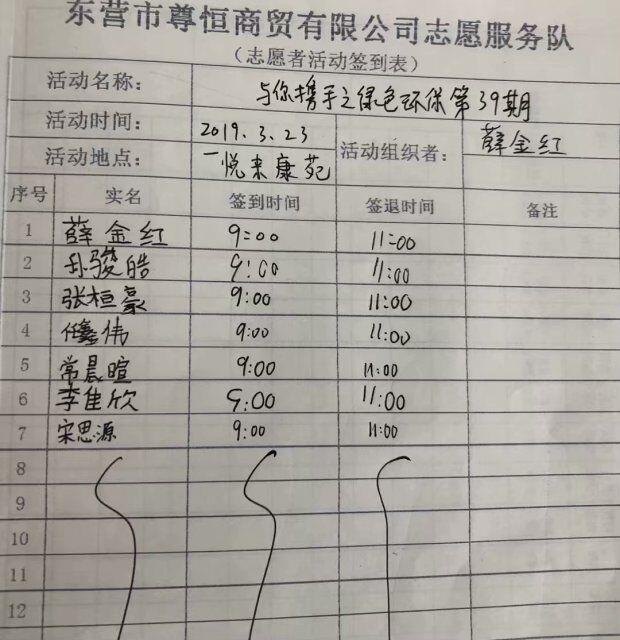 东营市尊恒商贸有限公司志愿服务队
（志愿者活动签到表）
活动名称： 与你携手之绿色环保第39期
活动时间： 2019.3.23 活动组织者： 薛金红
活动地点： 悦来康苑
序号 实名 签到时间 签退时间 备注
1 薛金红 9:00 11:00
2 孙骏皓 9:00 11:00
3 张桓豪 9:00 11:00
4 任鑫伟 9:00 11:00
5 常晨暄 9:00 11:00
6 李佳欣 9:00 11:00
7 宋思源 9:00 11:00
8
9
10
11
12